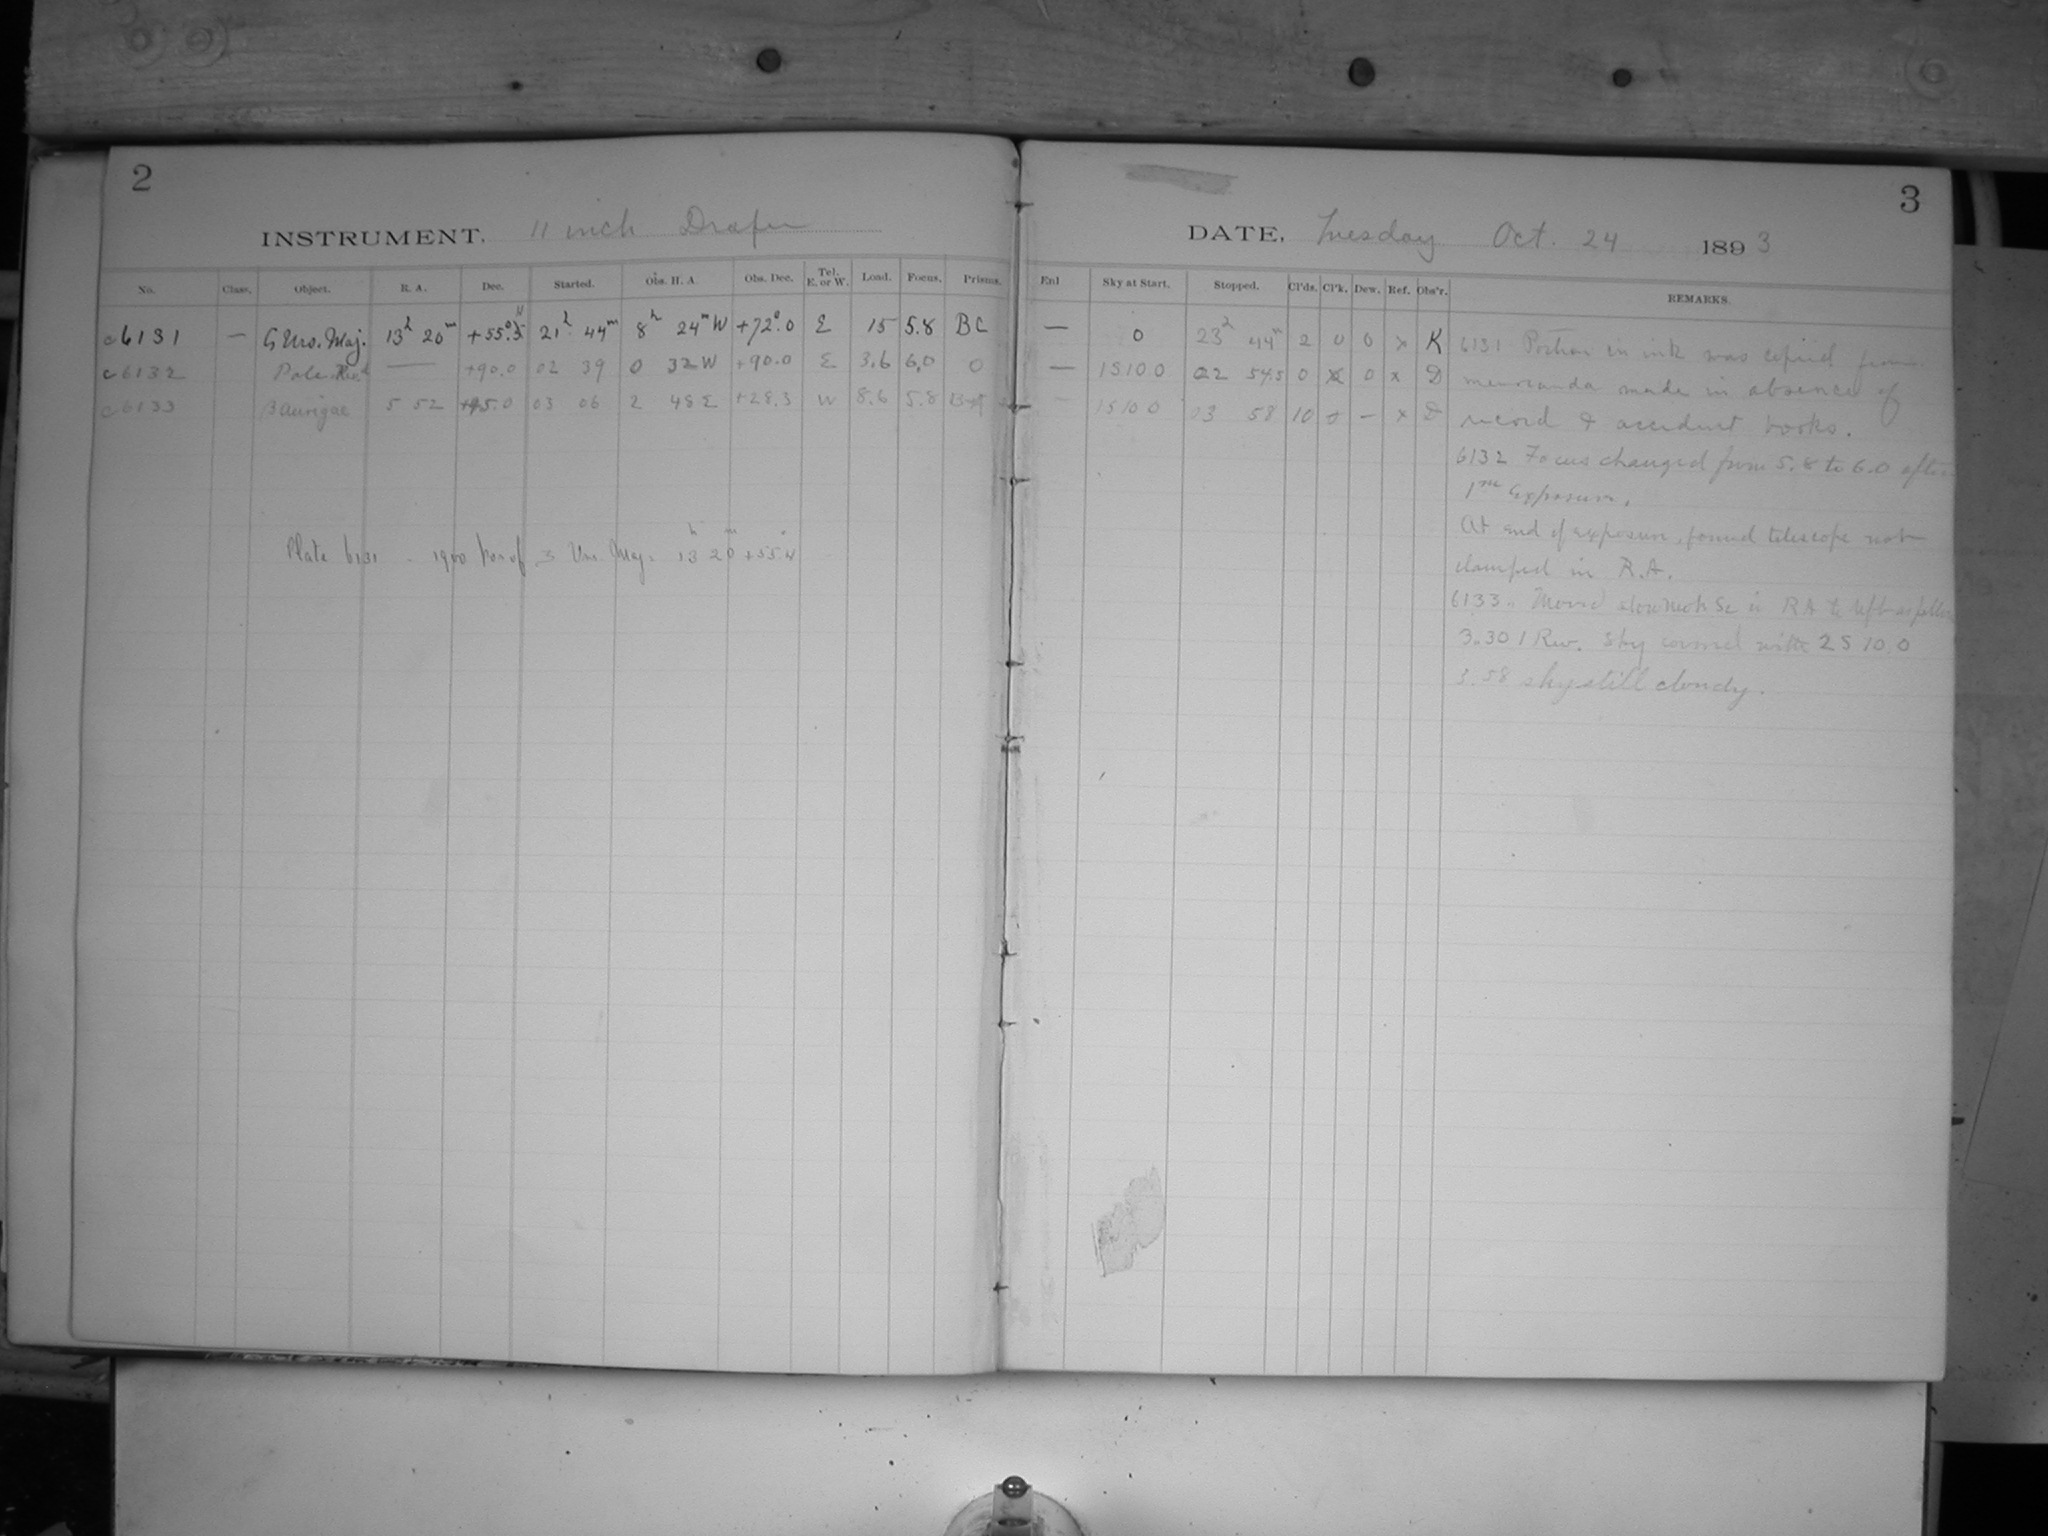 2
INSTRUMENT. 11 inch Draper
No. Class. Object. R. A. Dec. Started. Obs. H. A. Obs. Dec. Tel. E. or W. Load. Focus. Prisms.
c6131 — ζ Urs. Maj. 13h 20m +55°. 21h 44m 8h 24m W +72°.0 E 15 5.8 BC
c6132 Pole — +90.0 02 39 0 32W +90.0 E 3.6 6.0 0
c6133 β Aurigae 5 52 +45.0 03 06 2 48E +28.3 W 8.6 5.8
Plate 6131 . 1900 pos of ζ Urs. Maj. 13h 20m +55°
3
DATE, Tuesday Oct. 24 1893
Enl Sky at Start. Stopped. Cl'ds. Cl'k. Dew. Ref. Obs'r. REMARKS.
— 0 23h 44m 2 0 0 x K 6131 Portion in ink was copied from
— 15100 22 54.5 0 0 x D memoranda made in absence of
— 15100 03 58 10 — x D record & accident books.
6132 Focus changed from 5.8 to 6.0 after
1st exposure.
At end of exposure, found telescope not
clamped in R.A.
6133. Moved slow mot. Sc in RA to left as follows
3.30 1 Rev. Sky covered with 2 S 10.0
3.58 sky still cloudy.